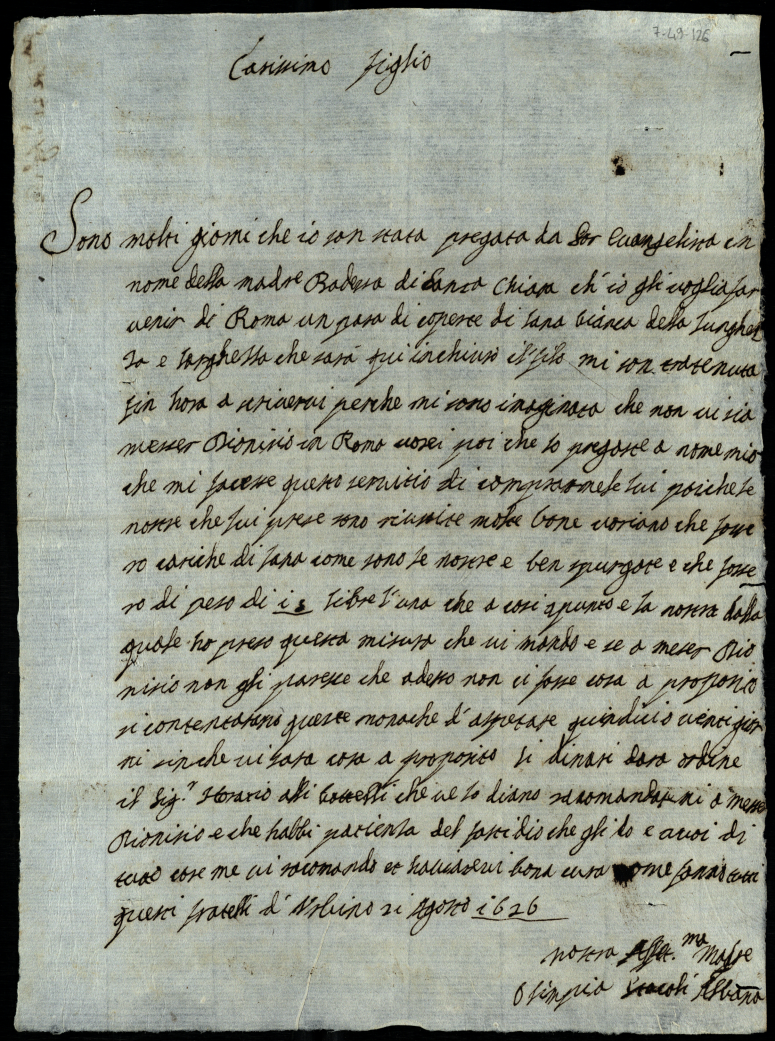 7-49-126
Carissimo figlio
Sono molti giorni che io son stata pregata da Sor Evangelista in
nome della madre Badessa di Santa Chiara ch' io gli voglia far
venir di Roma un paro di coperte di lana bianca della lunghez
za e larghezza che sarà qui inchiuso il filo mi son tratenuta
fin hora a scrivervi perche mi sono imaginata che non vi sia
messer Dionisio in Roma vorei poi che lo pregaste a nome mio
che mi facesse questo servitio di comprarmele lui poiche le
nostre che lui prese sono riuscite molte bone voriano che fosse
ro cariche di lana come sono le nostre e ben spurgate e che fosse
ro di peso di 15 libre l'una che a cosi apunto e la nostra dalla
quale ho preso questa misura che vi mando e se a meser Dio
nisio non gli paresse che adesso non ci fosse cosa a proposio
si contentarano queste monache d' aspetare quindici o venti gior
ni sin che vi sara cosa a proposito li dinari dara ordine
il Sig.r Horatio alli che ve lo diano racomandatemi a messer
Dionisio e che habbi pacienza del fastidio che gli do e a voi di
tuto core me vi racomando et habbiatevi bona cura come fanno tutti
questi fratelli d' Urbino 21 Agosto 1626
vostra Aff.ma Madre
Olimpia Staccoli Albana